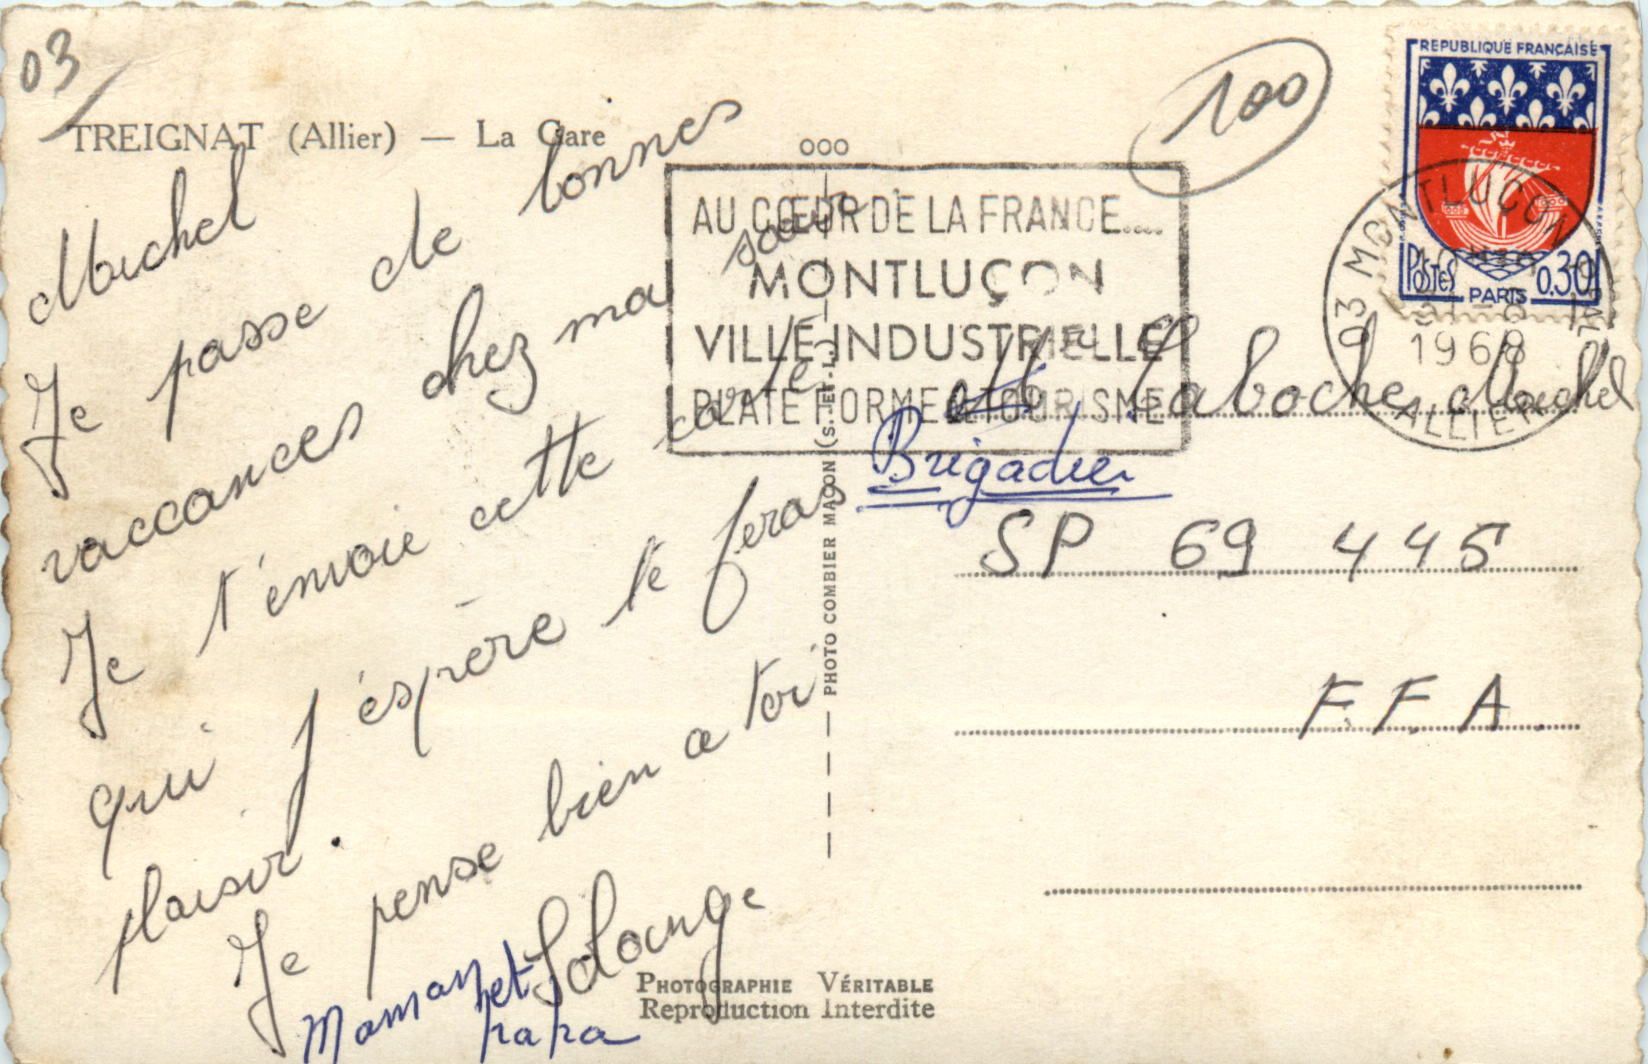 03
TREIGNAT (Allier) — La Gare
Michel
Je passe de bonnes
vaccances chez ma sœur.
Je t'envoie cette carte
qui j'éspère te feras
plaisir.
Je pense bien a toi
Solange
Maman et
papa
100
REPUBLIQUE FRANÇAISE
POSTES 0.30
PARIS
03 MONTLUÇON
1968
ALLIER
AU CŒUR DE LA FRANCE....
MONTLUÇON
VILLE INDUSTRIELLE
PLATE FORME DU TOURISME
Laboche Michel
Brigadier
SP 69 445
FFA
PHOTO COMBIER MACON (S.-ET-L.)
PHOTOGRAPHIE VÉRITABLE
Reproduction Interdite